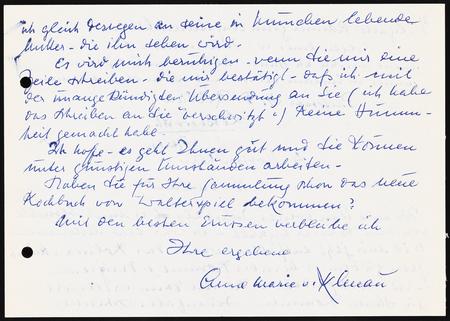 ich gleich deswegen an seine in München lebende
Mutter - die ihn sehen wird.
Es wird mich beruhigen - wenn Sie mir eine
Zeile schreiben - die mir bestätigt - daß ich mit
der unangekündigten Übersendung an Sie (ich habe
das Schreiben an Sie verschwitzt!) keine Dumm-
heit gemacht habe.
Ich hoffe - es geht Ihnen gut und Sie können
unter günstigen Umständen arbeiten -
Haben Sie für Ihre Sammlung schon das neue
Kochbuch von Walterspiel bekommen?
Mit den besten Grüssen verbleibe ich
Ihre ergebene
Anne Marie v.